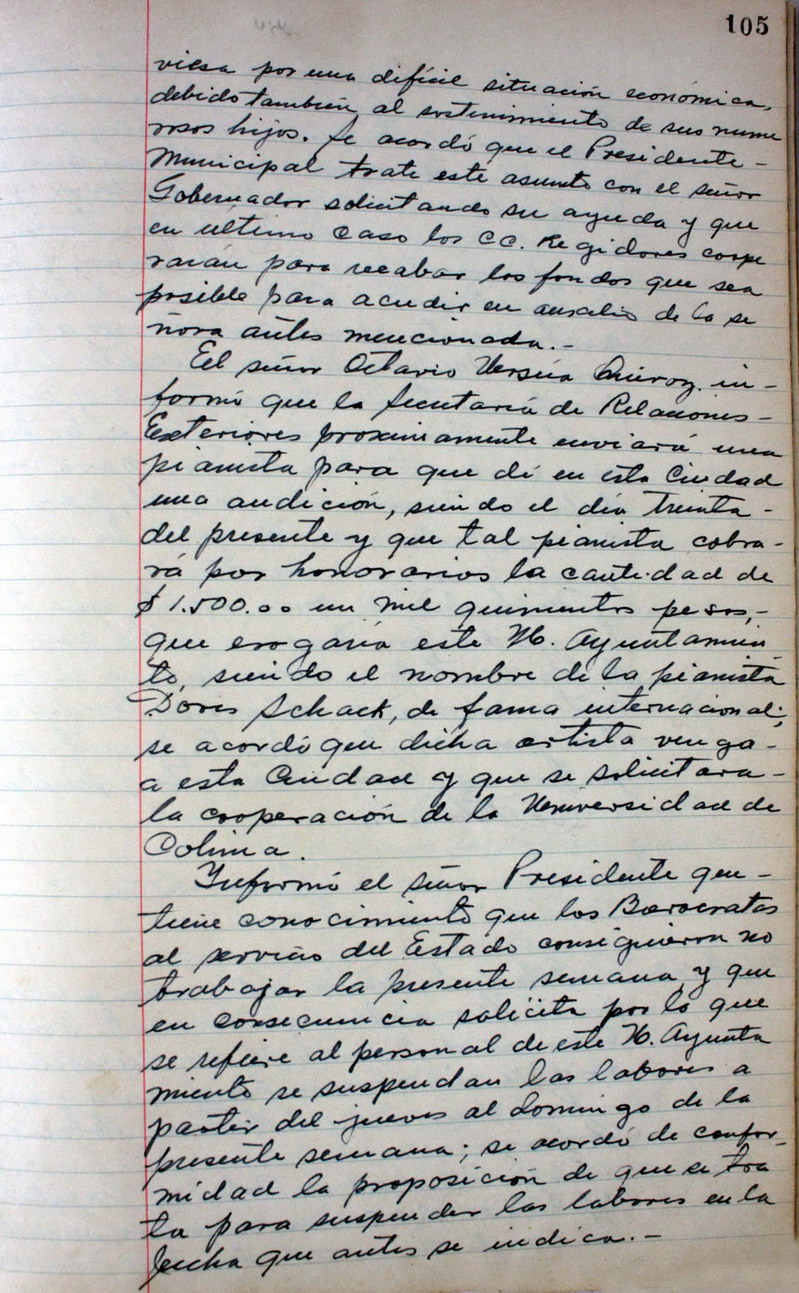 105
viesa por una difícil situación económica,
debido también al sostenimiento de sus nume
rosos hijos. Se acordó que el Presidente -
Municipal trate este asunto con el señor
Gobernador solicitando su ayuda y que
en ultimo caso los CC. Regidores coope
rarán para recabar los fondos que sea
posible para acudir en auxilio de la se
ñora antes mencionada. -
El señor Octavio Urzúa Quiroz, in -
formó que la Secretaría de Relaciones -
Exteriores proximamente enviará una
pianista para que dé en esta Ciudad
una audición, siendo el día treinta -
del presente y que tal pianista cobra -
rá por honorarios la cantidad de
$ 1.500.00 un mil quinientos pesos, -
que erogaría este H. Ayuntamien
to, siendo el nombre de la pianista
Doris Schack, de fama internacional;
se acordó que dicha artista venga -
a esta Ciudad y que se solicitara -
la cooperación de la Universidad de
Colima.
Informó el señor Presidente que -
tiene conocimiento que los Burocratas
al servicio del Estado consiguieron no
trabajar la presente semana y que
en consecuencia solicita por lo que
se refiere al personal de este H. Ayunta
miento se suspendan las labores a
partir del jueves al domingo de la
presente semana; se acordó de confor -
midad la proposición de que se tra
ta para suspender las labores en la
fecha que antes se indica. -